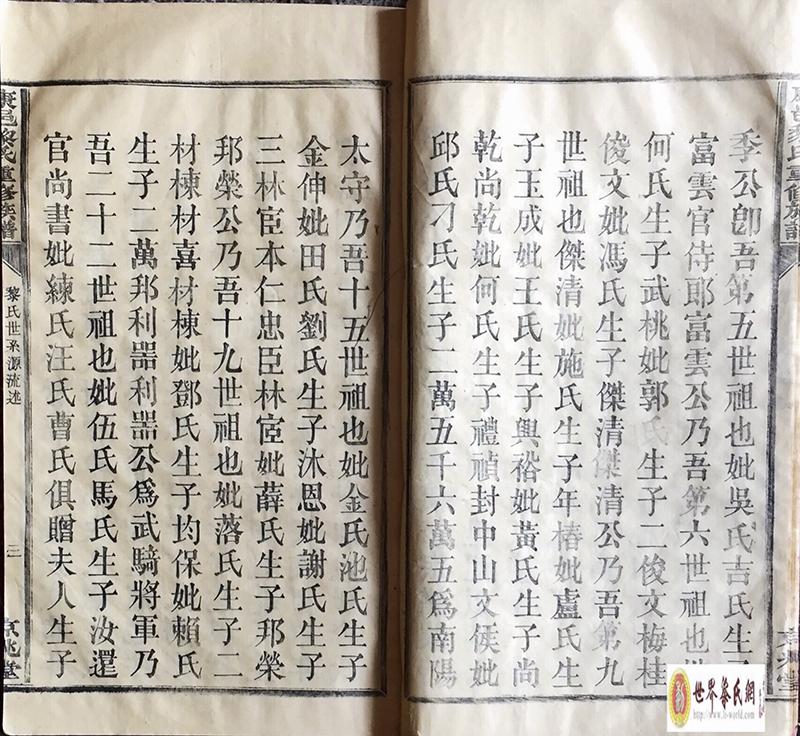 季公卽吾第五世祖也妣吳氏吉氏生子
富雲官侍郎富雲公乃吾第六世祖也妣
何氏生子武桃妣郭氏生子二俊文梅桂
俊文妣馮氏生子傑清傑清公乃吾第九
世祖也傑清妣施氏生子年椿妣盧氏生
子玉成妣王氏生子興裕妣黃氏生子尚
乾尚乾妣何氏生子禮禎封中山文侯妣
邱氏刁氏生子二萬五千六萬五爲南陽
太守乃吾十五世祖也妣金氏池氏生子
金伸妣田氏劉氏生子沐恩妣謝氏生子
三林宦本仁忠臣林宦妣薛氏生子邦榮
邦榮公乃吾十九世祖也妣落氏生子二
材棟材喜材棟妣鄧氏生子均保妣賴氏
生子二萬邦利器利器公爲武騎將軍乃
吾二十二世祖也妣伍氏馬氏生子汝還
官尚書妣練氏汪氏曹氏俱贈夫人生子
黎氏重修族譜
黎氏世系源流述
三
京兆堂
世界黎氏網
http://www.li-world.com